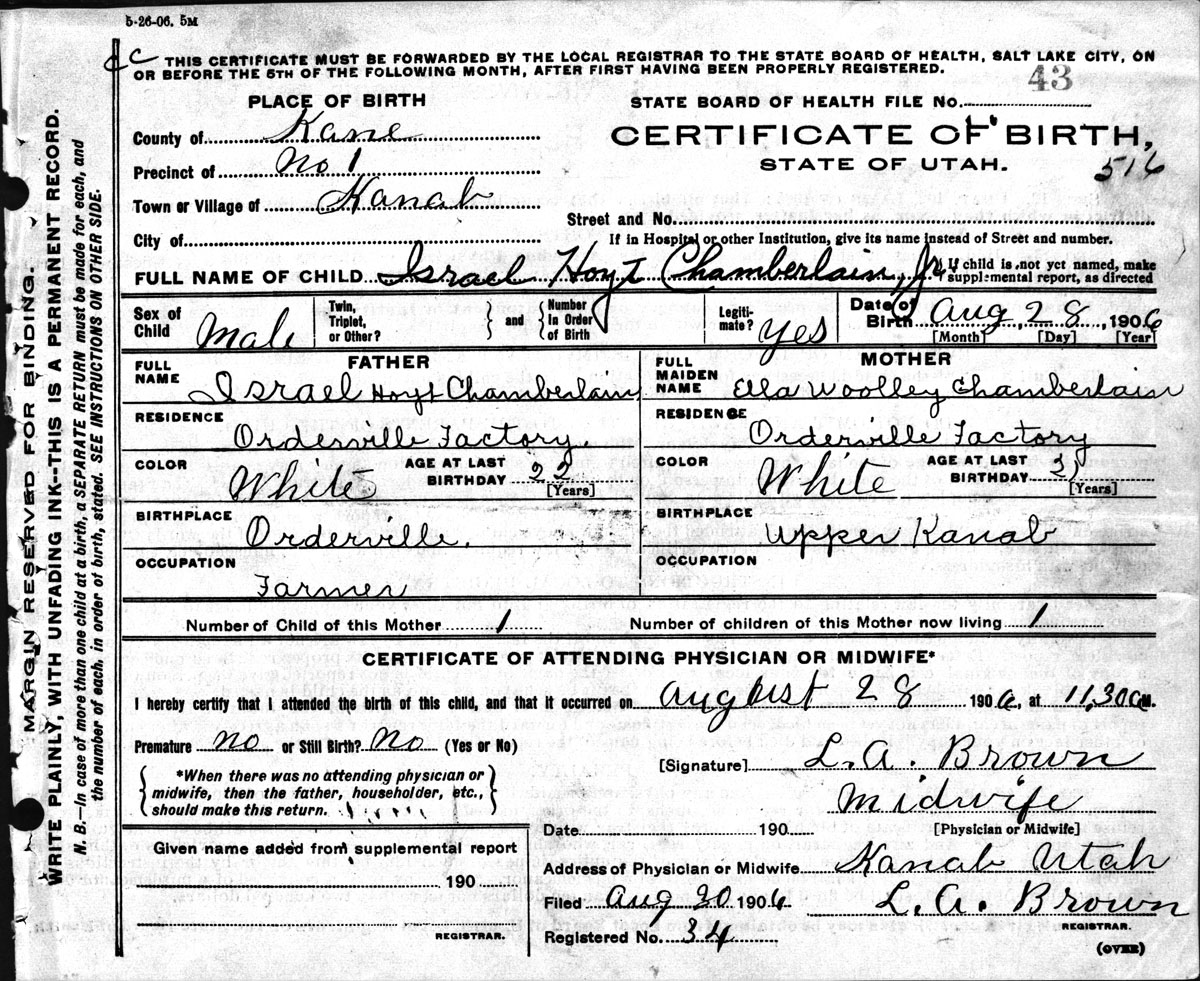 5-26-06. 5M
THIS CERTIFICATE MUST BE FORWARDED BY THE LOCAL REGISTRAR TO THE STATE BOARD OF HEALTH, SALT LAKE CITY, ON
OR BEFORE THE 5TH OF THE FOLLOWING MONTH, AFTER FIRST HAVING BEEN PROPERLY REGISTERED.
MARGIN RESERVED FOR BINDING.
WRITE PLAINLY, WITH UNFADING INK--THIS IS A PERMANENT RECORD.
N. B.—In case of more than one child at a birth, a SEPARATE RETURN must be made for each, and
the number of each, in order of birth, stated. SEE INSTRUCTIONS ON OTHER SIDE.
PLACE OF BIRTH
County of Kane
Precinct of No 1
Town or Village of Kanab
City of
STATE BOARD OF HEALTH FILE NO. 43
CERTIFICATE OF BIRTH,
STATE OF UTAH.
516
Street and No.
If in Hospital or other Institution, give its name instead of Street and number.
FULL NAME OF CHILD Israel Hoyt Chamberlain, Jr. If child is not yet named, make
supplemental report, as directed
Sex of Child Male
Twin, Triplet, or Other? and Number In Order of Birth
Legitimate? Yes
Date of Birth Aug, 28, 1906
[Month] [Day] [Year]
FATHER
FULL NAME Israel Hoyt Chamberlain
RESIDENCE Orderville Factory.
COLOR White AGE AT LAST BIRTHDAY 22 [Years]
BIRTHPLACE Orderville.
OCCUPATION Farmer
MOTHER
FULL MAIDEN NAME Ella Woolley Chamberlain
RESIDENCE Orderville Factory
COLOR White AGE AT LAST BIRTHDAY [Years]
BIRTHPLACE Upper Kanab
OCCUPATION
Number of Child of this Mother 1 Number of children of this Mother now living 1
CERTIFICATE OF ATTENDING PHYSICIAN OR MIDWIFE*
I hereby certify that I attended the birth of this child, and that it occurred on August 28 1906, at 11,30 a M.
Premature No or Still Birth? No (Yes or No)
*When there was no attending physician or
midwife, then the father, householder, etc.,
should make this return.
[Signature] L. A. Brown
Midwife
Date 190 [Physician or Midwife]
Given name added from supplemental report
190
REGISTRAR.
Address of Physician or Midwife Kanab Utah
Filed Aug 30 1906 L. A. Brown
REGISTRAR.
Registered No. 34
(OVER)